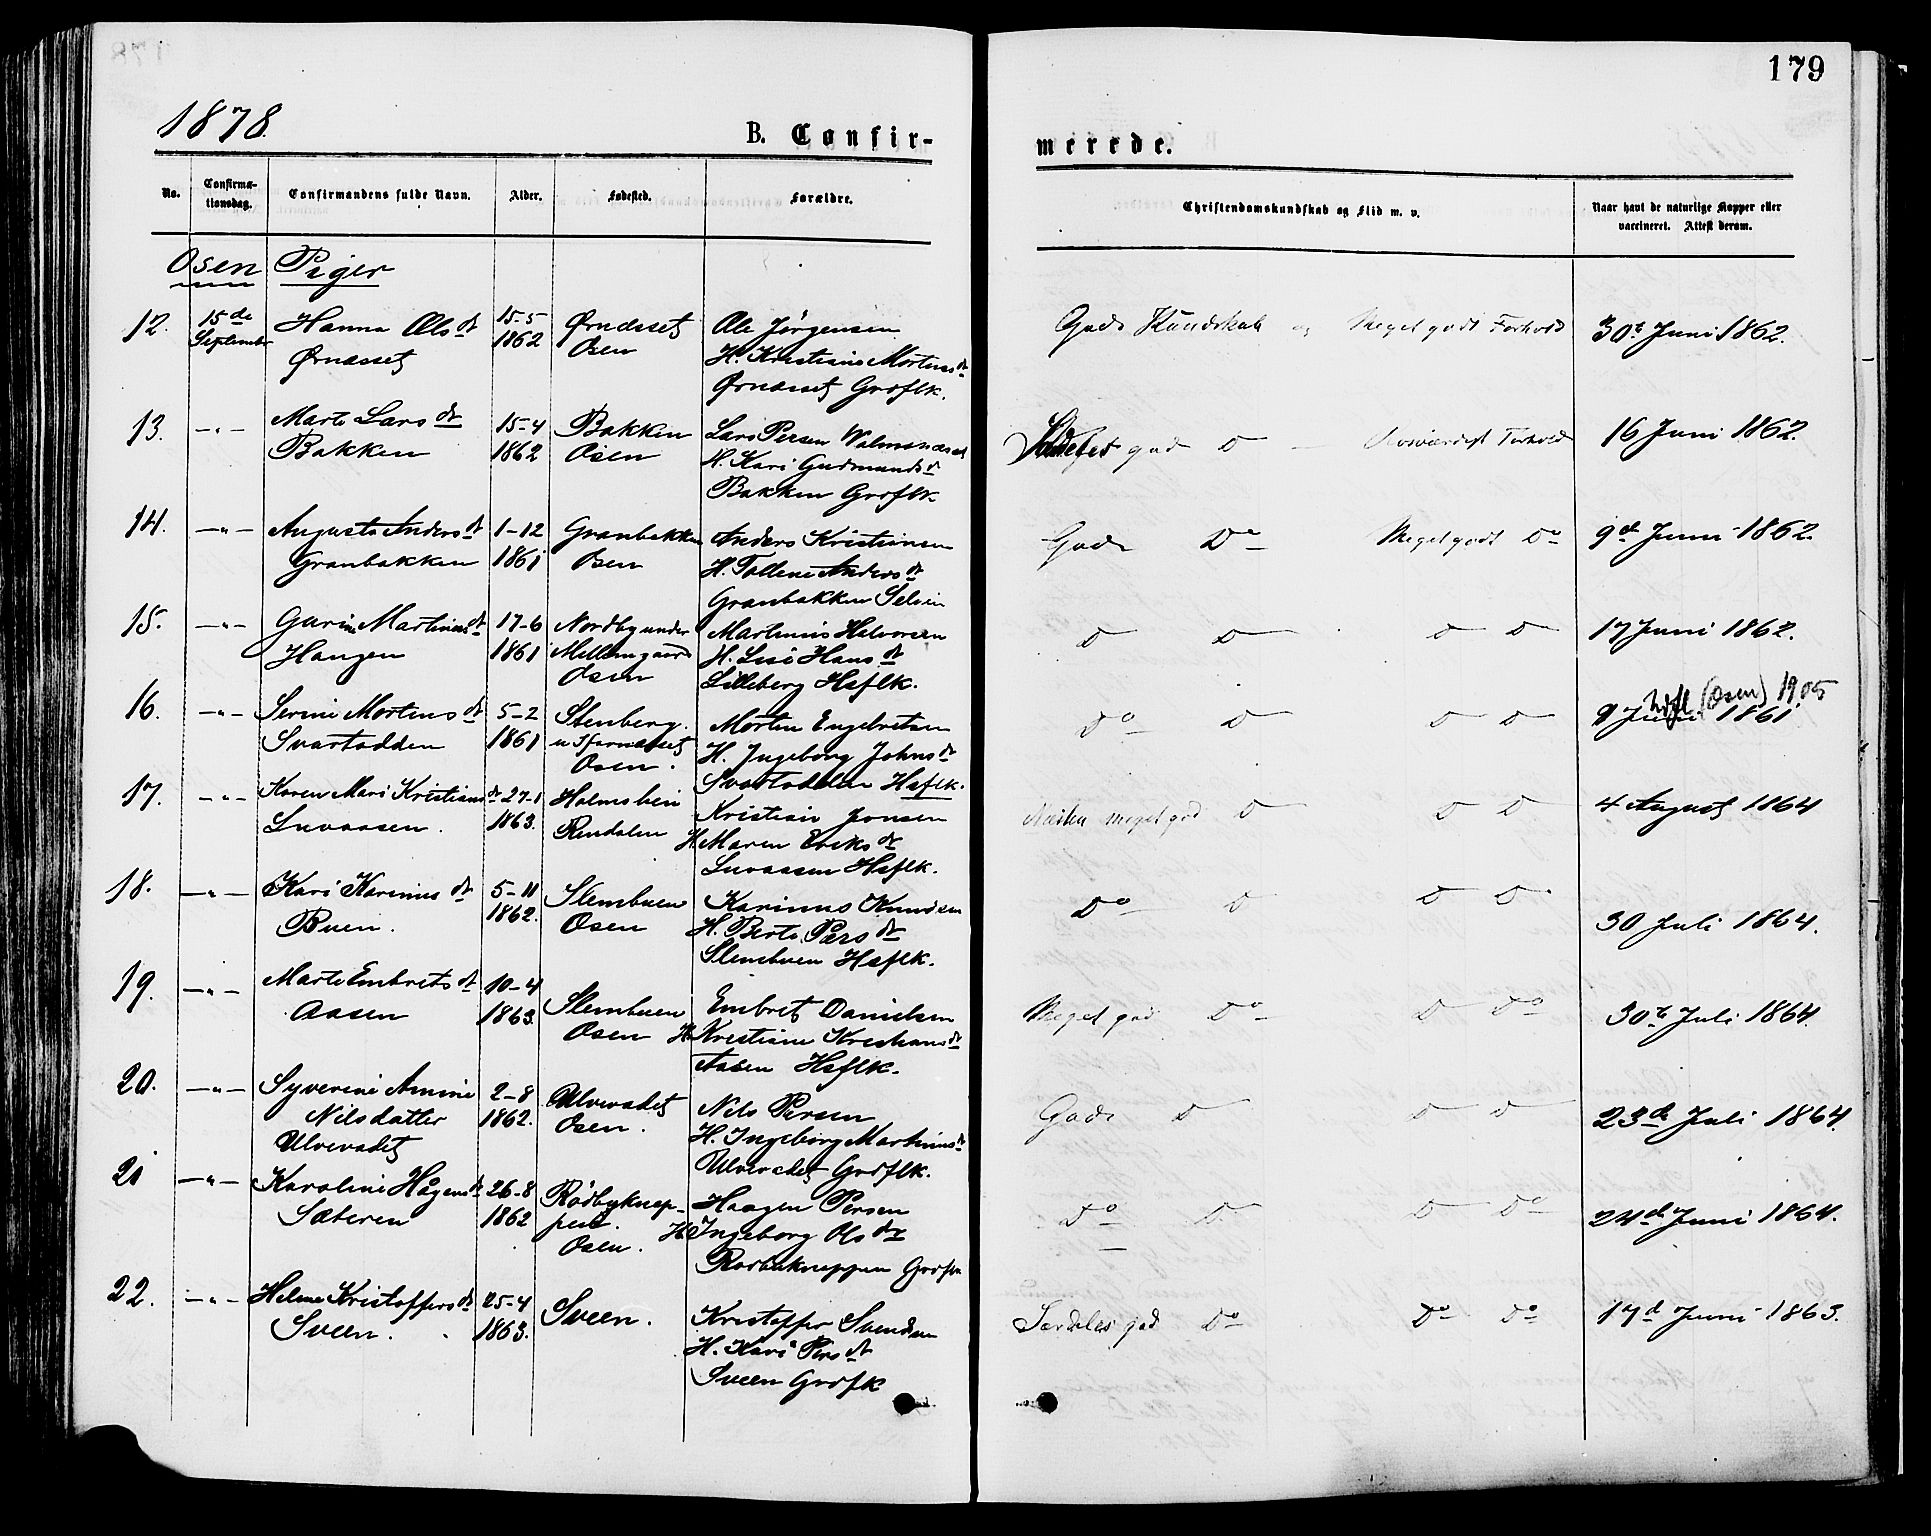 179
1878.
B. Confir-
merede.
No.
Confirma-
tionsdag.
Confirmandens fulde Navn.
Alder.
Fødested.
Forældre.
Christendomskundskab og Flid m. v.
Naar havt de naturlige Kopper eller
vaccineret. Attest derom.
Osen Piger
12. 15de September Hanna Ols dt Ørnæsset 15-5 1862 Ørnæsset Osen
Ole Jørgensen
H. Kristiane Mortens dt
Ørnæsset Grdflk.
Gode Kundskab og Meget godt Forhold 30t Juni 1862.
13. -"- Marte Lars dt Bakken 15-4 1862 Bakken Osen
Lars Persen
H. Kari Gudmunds dt
Bakken Grdflk
god D - Forhold 16 Juni 1862.
14. -"- Auguste Anders dt Granbakken 1-12 1861 Granbakken Osen
Anders Kristiansen
H. Talline Anders dt
Granbakken
Gode Do Meget godt Do 9d Juni 1862.
15. -"- Garine Martinus dt Haugen 17-6 1861 Nordby under Mellemgaard Osen
Martinus Halvorsen
H. Lisé Hans dt
Lilleberg Hsflk.
D D D D 17 Juni 1862.
16. -"- Serine Mortens dt Svartodden 5-2 1861 Stenberg Osen.
Morten Engebretsen
H. Ingeborg Johns dt
Svartodden Hsflk.
Do D D D 9 Juni 1861.
(Osen) 1905
17. -"- Karen Mari Kristians dt Luvaasen. 27-1 1863. Rendalen
Kristian Jonsen
H. Maren Eriks dt
Luvaasen Hsflk.
Næsten meget god D D D 4 August 1864
18. -"- Kari Karinus dt Buen. 5-11 1862. Slembuen Osen
Karinus Knudsen
H. Berte Pers dt
Slembuen Hsflk.
Do D D D 30 Juli 1864.
19. -"- Marte Embrets dt Aasen 10-4 1863. Slembuen Osen
Embret Danielsen
H. Kristiane Kristians dt
Aasen Hsflk.
Meget god Do D Do 30t Juli 1864.
20. -"- Syverine Amine Nilsdatter Ulvevadet 2-8 1862. Ulvevadet Osen.
Nils Persen
H. Ingeborg Martinus dt
Ulvevadet Grdflk.
Gode D D D 23d Juli 1864.
21 -"- Karoline Hågens dt Sæteren 26-8 1862 Rødbyknep- pen. Osen.
Haagen Persen
H. Ingeborg Ols dt
Do D D Do 24d Juni 1864.
22. -"- Helene Kristoffers dt Sveen. 25-4 1863. Sveen.
Kristoffer Svendsen
H. Kari Pers dt
Sveen Grdfk
Særdeles god Do Do Do 17d Juni 1863.